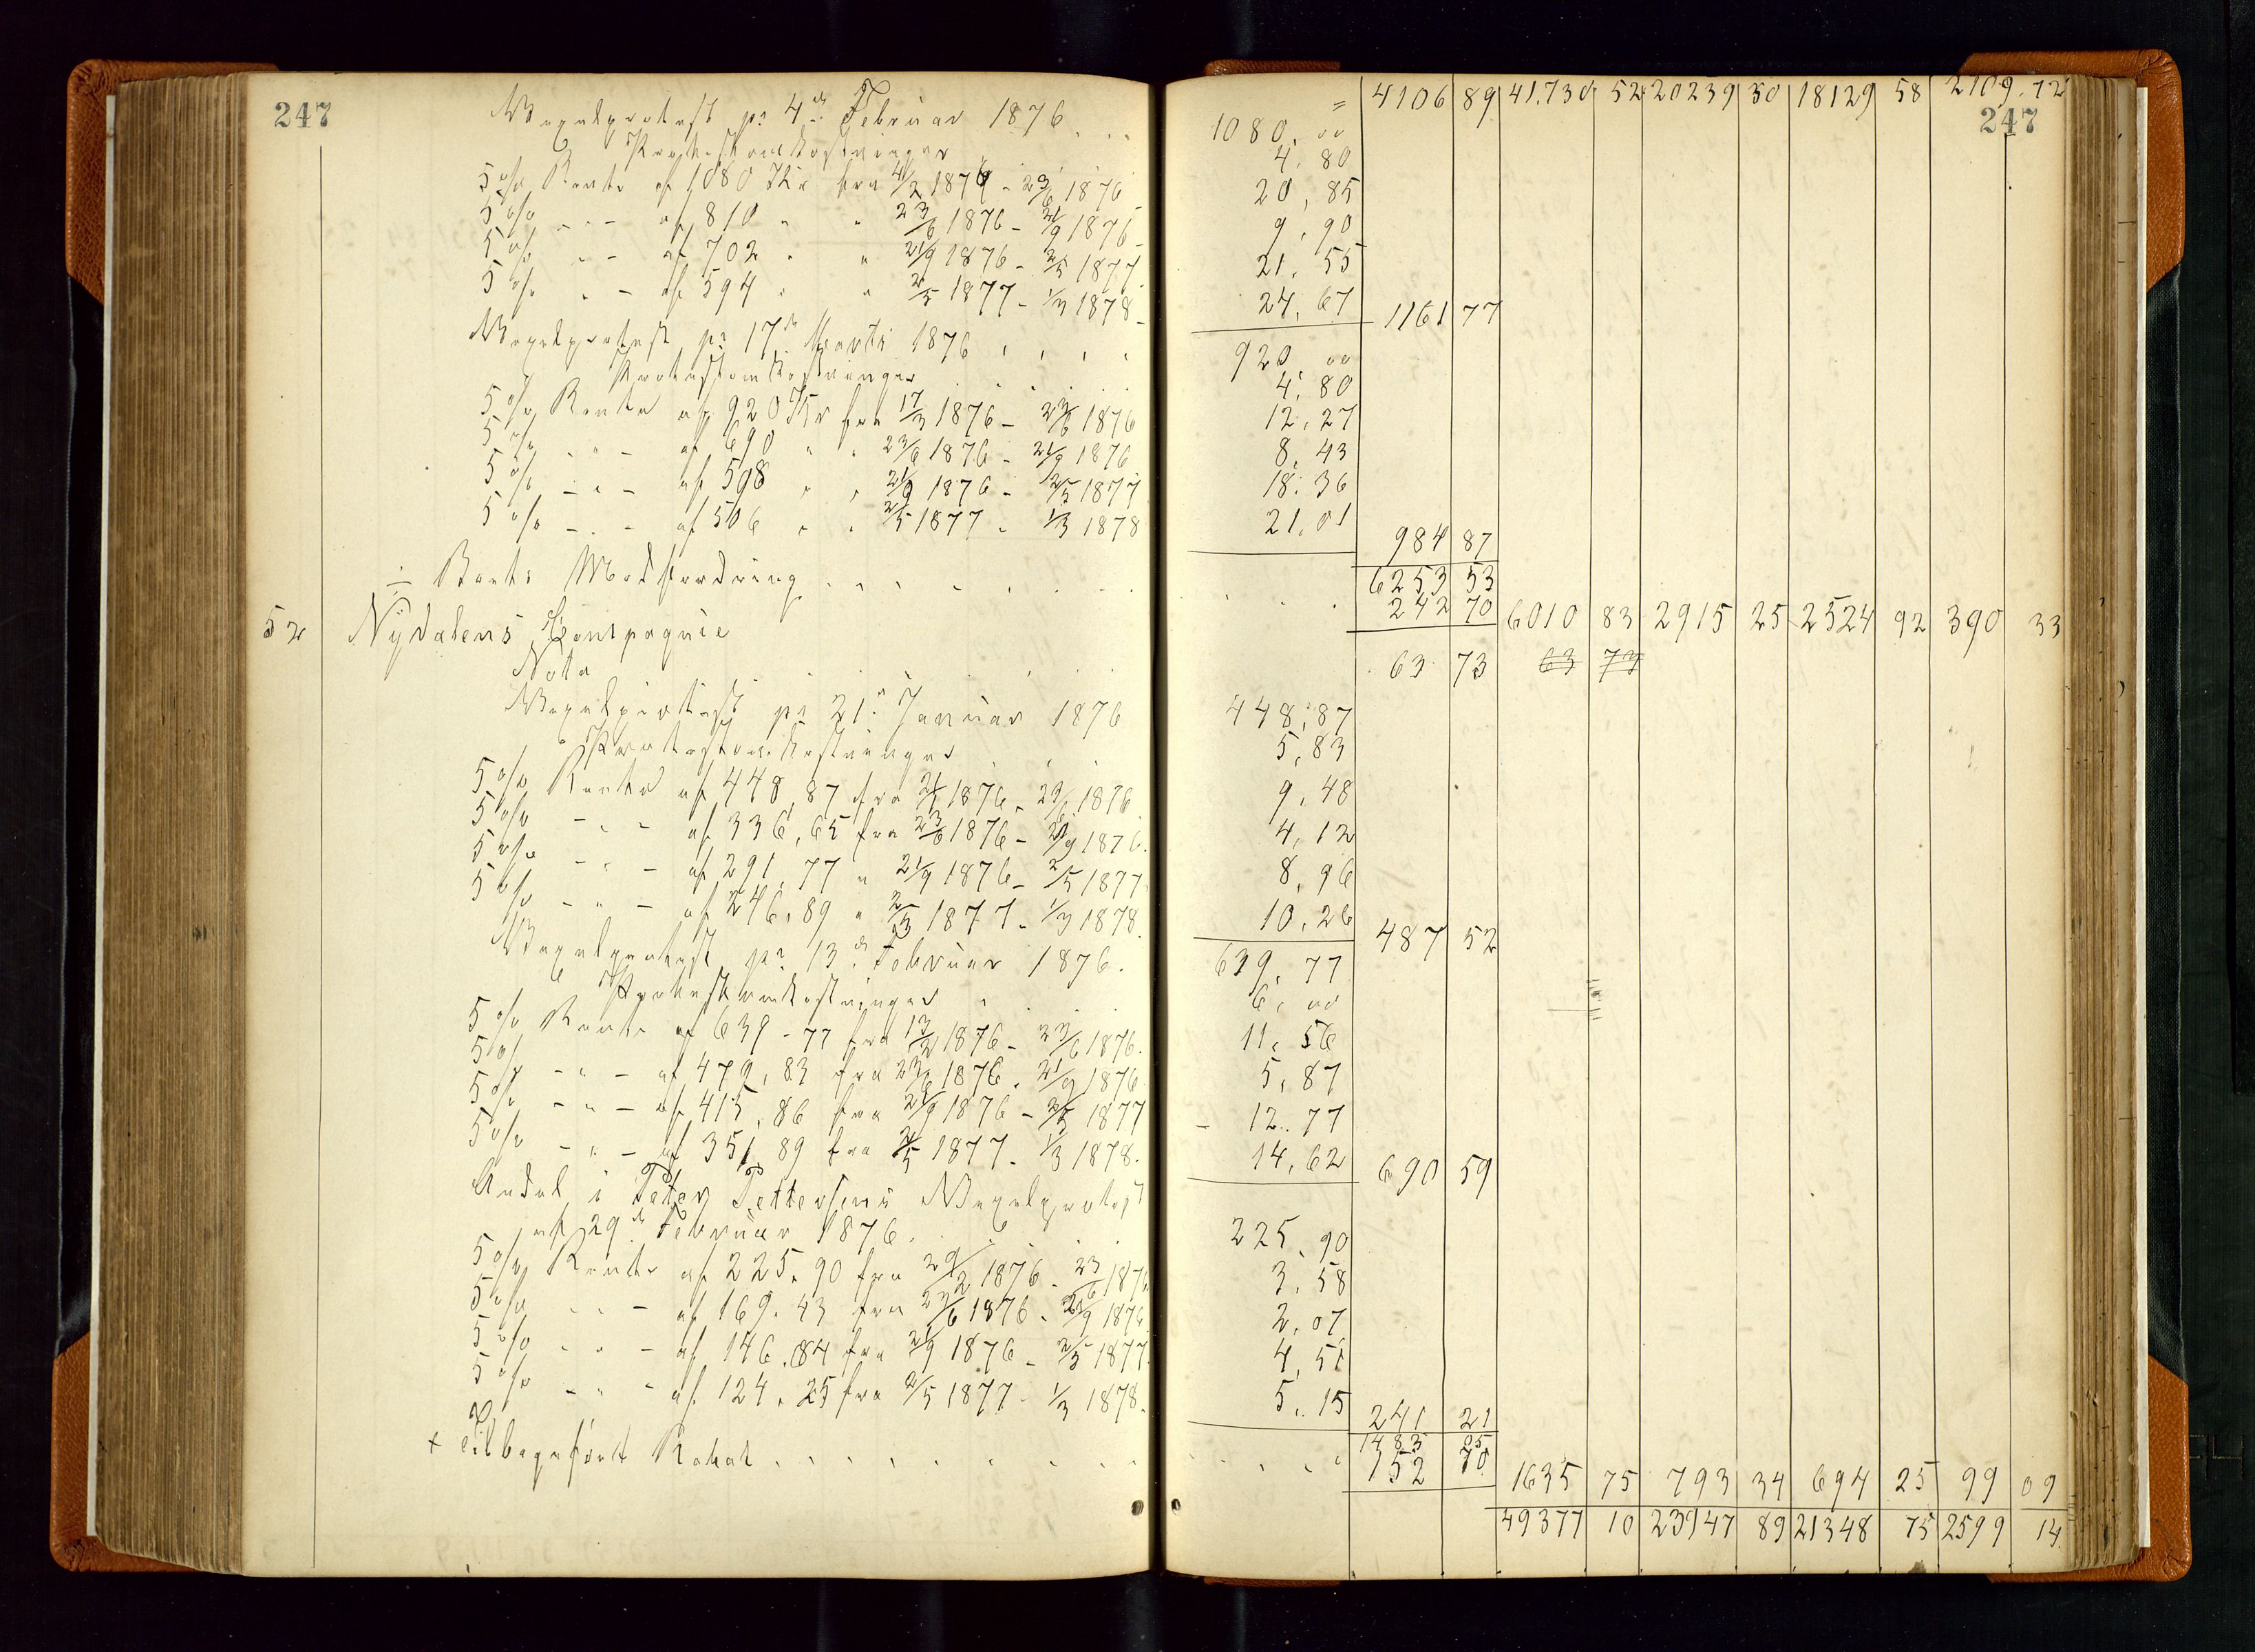 247 Vexelprotest pr 4de Februar 1876 . . . = 4106 89 41,730 52 20239 30 18129 58 2109. 72
247
Protestomkostninger 1080. 00
4. 80
5% Rente af 1080 Kr fra 4/2 1876 - 23/6 1876 20, 85
5% - " - af 810 " " 23/6 1876 - 21/9 1876 9, 90
5% - " - af 702 " " 21/9 1876 - 2/5 1877 21. 55
5% - " - af 594 " " 2/5 1877 - 1/3 1878 24, 67 1161 77
Vexelprotest pr 17de Marts 1876 . . . . 920, 00
Protestomkostninger 4. 80
5% Rente af 920 Kr fra 17/3 1876 - 23/6 1876 12, 27
5% - " - af 690 " " 23/6 1876 - 21/9 1876 8, 43
5% - " - af 598 " " 21/9 1876 - 2/5 1877 18. 36
5% - " - af 506 " " 2/5 1877 - 1/3 1878 21, 01 984 87
6253 53
÷ Boets Modfordring . . . . . . 242 70 6010 83 2915 25 2524 92 390 33
52 Nydalens Compagnie
Nota . . . . . 63 73 63 73
Vexelprotest pr 21de Januar 1876 448, 87
Protestomkostninger 5, 83
5% Rente af 448, 87 fra 21/1 1876 - 23/6 1876 9, 48
5% - " - af 336, 65 fra 23/6 1876 - 21/9 1876. 4, 12
5% - " - af 291, 77 " 21/9 1876 - 2/5 1877 8, 96
5% - " - af 246, 89 " 2/5 1877 - 1/3 1878. 10, 26 487 52
Vexelprotest pr 13de Februar 1876. 639, 77
Protestomkostninger . 6, 00
5% Rente af 639 - 77 fra 13/2 1876 - 23/6 1876. 11, 56
5% - " - af 479, 83 fra 23/6 1876 - 21/9 1876 5, 87
5% - " - af 415, 86 fra 21/9 1876 - 2/5 1877 12. 77
5% - " - af 351, 89 fra 2/5 1877 - 1/3 1878. 14, 62 690 59
Andel i Peter Pettersens Vexelprotest
af 29de Februar 1876. . . . 225, 90
5% Rente af 225. 90 fra 29/2 1876 - 23/6 1876 3. 58
5% - " - af 169. 43 fra 23/6 1876 - 21/9 1876 2. 07
5% - " - af 146. 84 fra 21/9 1876 - 2/5 1877. 4, 51
5% - " - af 124. 25 fra 2/5 1877 - 1/3 1878. 5. 15 241 21
1483 05
+ Tilbageført Rabat . . . . . . . 152 70 1635 75 793 34 694 25 99 09
49377 10 23947 89 21348 75 2599 14.